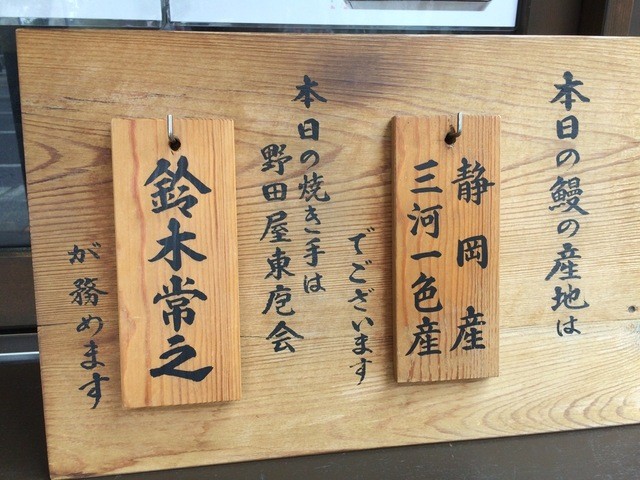 本日の鰻の産地は
静岡産
三河一色産
でございます
本日の焼き手は
野田屋東庖会
鈴木常之
が務めます